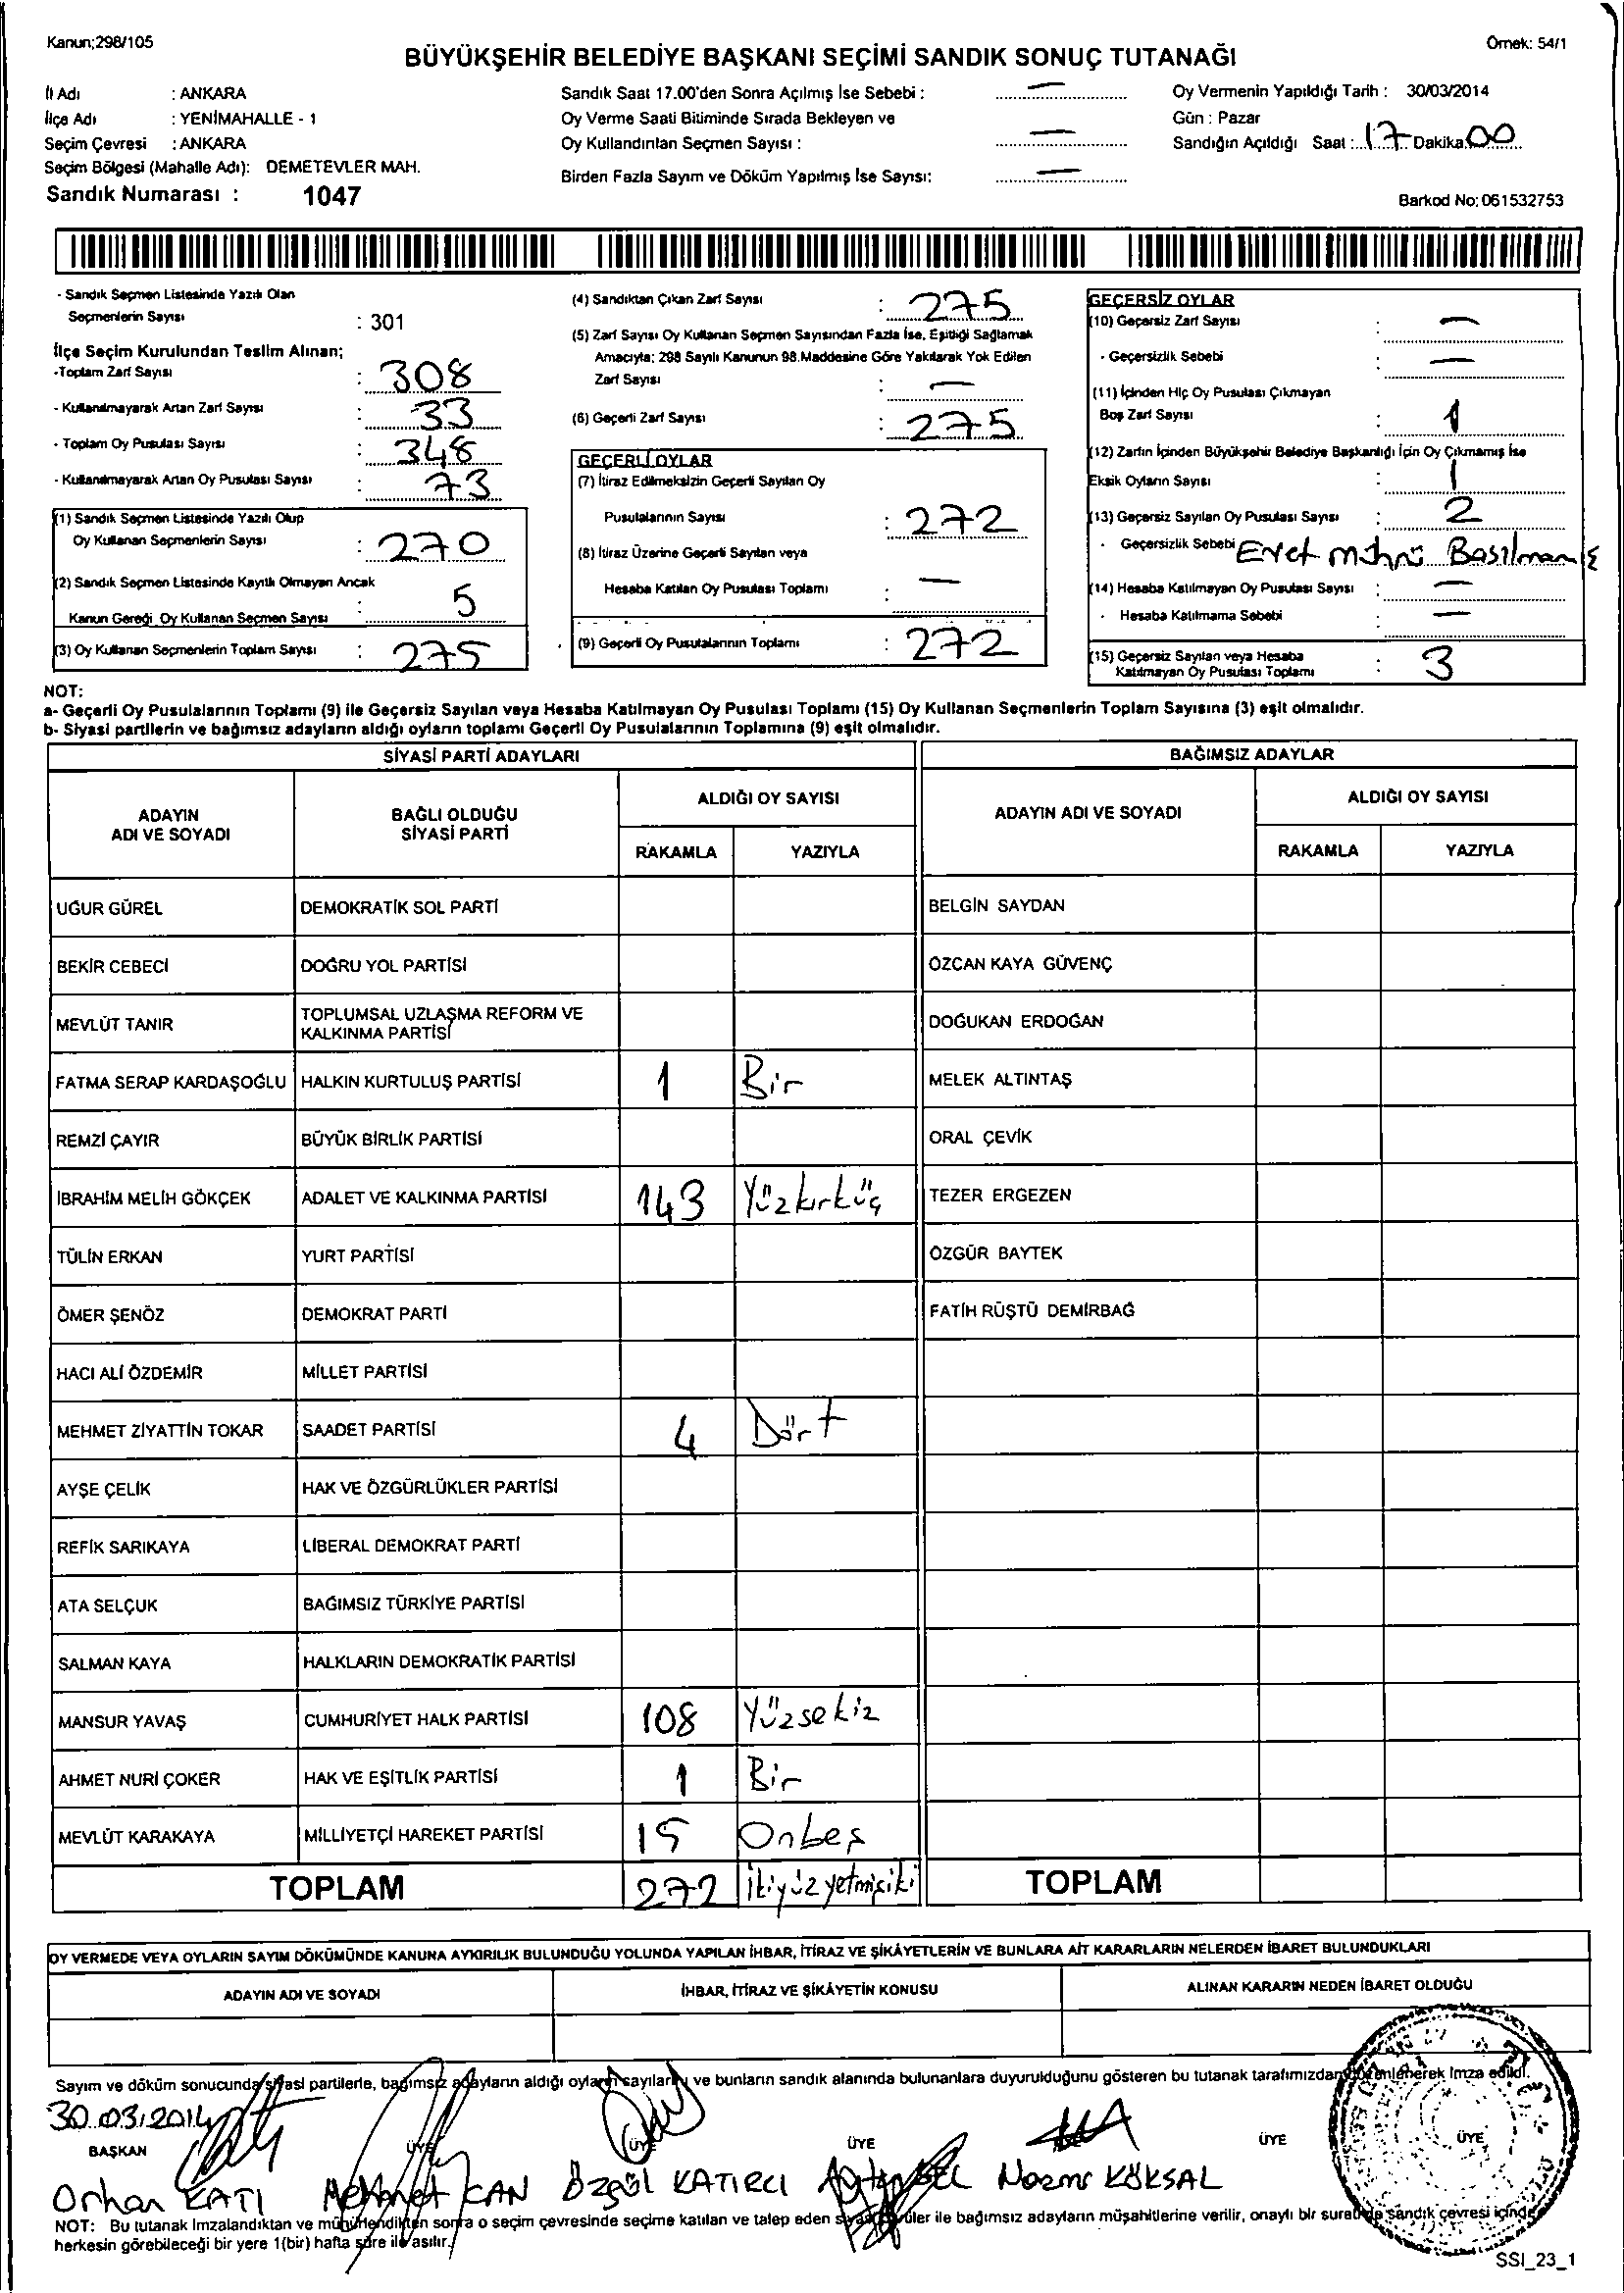 Kanun;298/105
Örnek: 54/1
BÜYÜKŞEHİR BELEDİYE BAŞKANI SEÇİMİ SANDIK SONUÇ TUTANAĞI
İl Adı : ANKARA
İlçe Adı : YENİMAHALLE - 1
Seçim Çevresi : ANKARA
Seçim Bölgesi (Mahalle Adı): DEMETEVLER MAH.
Sandık Numarası : 1047
Sandık Saat 17.00'den Sonra Açılmış İse Sebebi : —
Oy Verme Saati Bitiminde Sırada Bekleyen ve
Oy Kullandırılan Seçmen Sayısı : —
Birden Fazla Sayım ve Döküm Yapılmış İse Sayısı: —
Oy Vermenin Yapıldığı Tarih : 30/03/2014
Gün : Pazar
Sandığın Açıldığı Saat : 17 Dakika 00
Barkod No: 061532753
- Sandık Seçmen Listesinde Yazılı Olan
Seçmenlerin Sayısı : 301
İlçe Seçim Kurulundan Teslim Alınan;
-Toplam Zarf Sayısı : 308
- Kullanılmayarak Artan Zarf Sayısı : 33
- Toplam Oy Pusulası Sayısı : 348
- Kullanılmayarak Artan Oy Pusulası Sayısı : 73
(1) Sandık Seçmen Listesinde Yazılı Olup
Oy Kullanan Seçmenlerin Sayısı : 270
(2) Sandık Seçmen Listesinde Kayıtlı Olmayan Ancak
Kanun Gereği Oy Kullanan Seçmen Sayısı : 5
(3) Oy Kullanan Seçmenlerin Toplam Sayısı : 275
(4) Sandıktan Çıkan Zarf Sayısı : 275
(5) Zarf Sayısı Oy Kullanan Seçmen Sayısından Fazla İse, Eşitliği Sağlamak
Amacıyla; 298 Sayılı Kanunun 98.Maddesine Göre Yakılarak Yok Edilen
Zarf Sayısı : —
(6) Geçerli Zarf Sayısı : 275
GEÇERLİ OYLAR
(7) İtiraz Edilmeksizin Geçerli Sayılan Oy
Pusulalarının Sayısı : 272
(8) İtiraz Üzerine Geçerli Sayılan veya
Hesaba Katılan Oy Pusulası Toplamı : —
(9) Geçerli Oy Pusulalarının Toplamı : 272
GEÇERSİZ OYLAR
(10) Geçersiz Zarf Sayısı : —
- Geçersizlik Sebebi : —
(11) İçinden Hiç Oy Pusulası Çıkmayan
Boş Zarf Sayısı : 1
(12) Zarfın İçinden Büyükşehir Belediye Başkanlığı İçin Oy Çıkmamış İse
Eksik Oyların Sayısı : 1
(13) Geçersiz Sayılan Oy Pusulası Sayısı : 2
- Geçersizlik Sebebi Evet mührü Basılmamış
(14) Hesaba Katılmayan Oy Pusulası Sayısı : —
- Hesaba Katılmama Sebebi : —
(15) Geçersiz Sayılan veya Hesaba
Katılmayan Oy Pusulası Toplamı : 3
NOT:
a- Geçerli Oy Pusulalarının Toplamı (9) ile Geçersiz Sayılan veya Hesaba Katılmayan Oy Pusulası Toplamı (15) Oy Kullanan Seçmenlerin Toplam Sayısına (3) eşit olmalıdır.
b- Siyasi partilerin ve bağımsız adayların aldığı oyların toplamı Geçerli Oy Pusulalarının Toplamına (9) eşit olmalıdır.
SİYASİ PARTİ ADAYLARI BAĞIMSIZ ADAYLAR
ADAYIN ADI VE SOYADI
BAĞLI OLDUĞU SİYASİ PARTİ
ALDIĞI OY SAYISI
RAKAMLA YAZIYLA
ADAYIN ADI VE SOYADI
ALDIĞI OY SAYISI
RAKAMLA YAZIYLA
UĞUR GÜREL DEMOKRATİK SOL PARTİ BELGİN SAYDAN
BEKİR CEBECİ DOĞRU YOL PARTİSİ ÖZCAN KAYA GÜVENÇ
MEVLÜT TANIR TOPLUMSAL UZLAŞMA REFORM VE KALKINMA PARTİSİ DOĞUKAN ERDOĞAN
FATMA SERAP KARDAŞOĞLU HALKIN KURTULUŞ PARTİSİ 1 Bir MELEK ALTINTAŞ
REMZİ ÇAYIR BÜYÜK BİRLİK PARTİSİ ORAL ÇEVİK
İBRAHİM MELİH GÖKÇEK ADALET VE KALKINMA PARTİSİ 143 Yüzkırküç TEZER ERGEZEN
TÜLİN ERKAN YURT PARTİSİ ÖZGÜR BAYTEK
ÖMER ŞENÖZ DEMOKRAT PARTİ FATİH RÜŞTÜ DEMİRBAĞ
HACI ALİ ÖZDEMİR MİLLET PARTİSİ
MEHMET ZİYATTİN TOKAR SAADET PARTİSİ 4 Dört
AYŞE ÇELİK HAK VE ÖZGÜRLÜKLER PARTİSİ
REFİK SARIKAYA LİBERAL DEMOKRAT PARTİ
ATA SELÇUK BAĞIMSIZ TÜRKİYE PARTİSİ
SALMAN KAYA HALKLARIN DEMOKRATİK PARTİSİ
MANSUR YAVAŞ CUMHURİYET HALK PARTİSİ 108 Yüzsekiz
AHMET NURİ ÇOKER HAK VE EŞİTLİK PARTİSİ 1 Bir
MEVLÜT KARAKAYA MİLLİYETÇİ HAREKET PARTİSİ 15 Onbeş
TOPLAM 272 İkiyüzyetmişiki TOPLAM
OY VERMEDE VEYA OYLARIN SAYIM DÖKÜMÜNDE KANUNA AYKIRILIK BULUNDUĞU YOLUNDA YAPILAN İHBAR, İTİRAZ VE ŞİKÂYETLERİN VE BUNLARA AİT KARARLARIN NELERDEN İBARET BULUNDUKLARI
ADAYIN ADI VE SOYADI İHBAR, İTİRAZ VE ŞİKÂYETİN KONUSU ALINAN KARARIN NEDEN İBARET OLDUĞU
Sayım ve döküm sonucunda siyasi partilerle, bağımsız adayların aldığı oyların sayıları ve bunların sandık alanında bulunanlara duyurulduğunu gösteren bu tutanak tarafımızdan düzenlenerek imza edildi.
30.03.2014
BAŞKAN ÜYE ÜYE ÜYE ÜYE ÜYE
Orhan KATI Mehmet CAN Özgül KATIRCI Nazmi KÖKSAL
NOT: Bu tutanak imzalandıktan ve mühürlendikten sonra o seçim çevresinde seçime katılan ve talep eden siyasi partiler ile bağımsız adayların müşahitlerine verilir, onaylı bir sureti de sandık çevresi içinde
herkesin görebileceği bir yere 1(bir) hafta süre ile asılır.
SSI_23_1